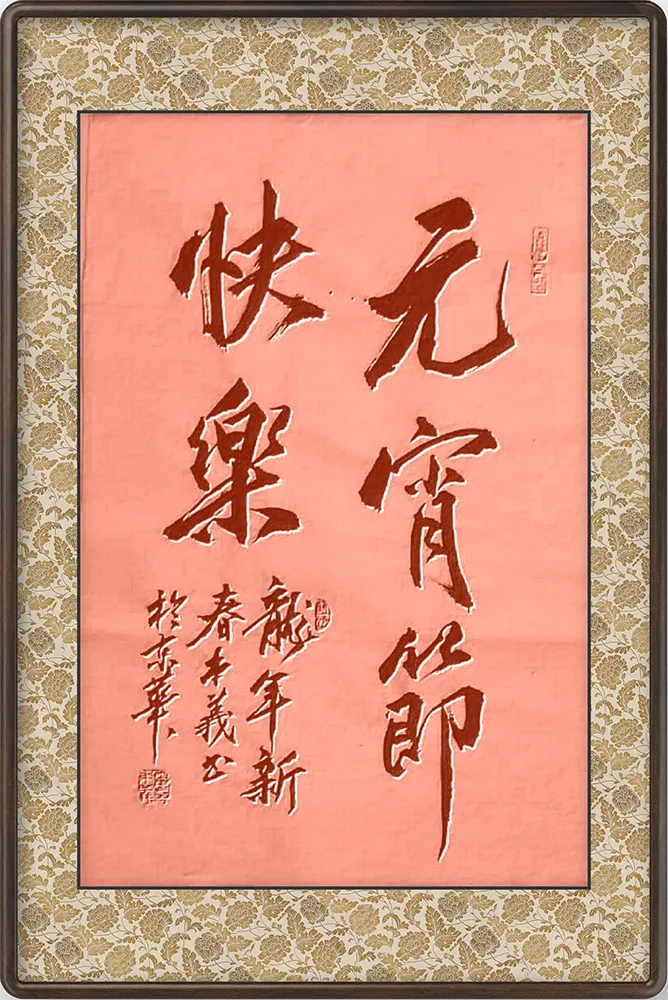 元宵節
快樂
龍年新
春本義書
於京華